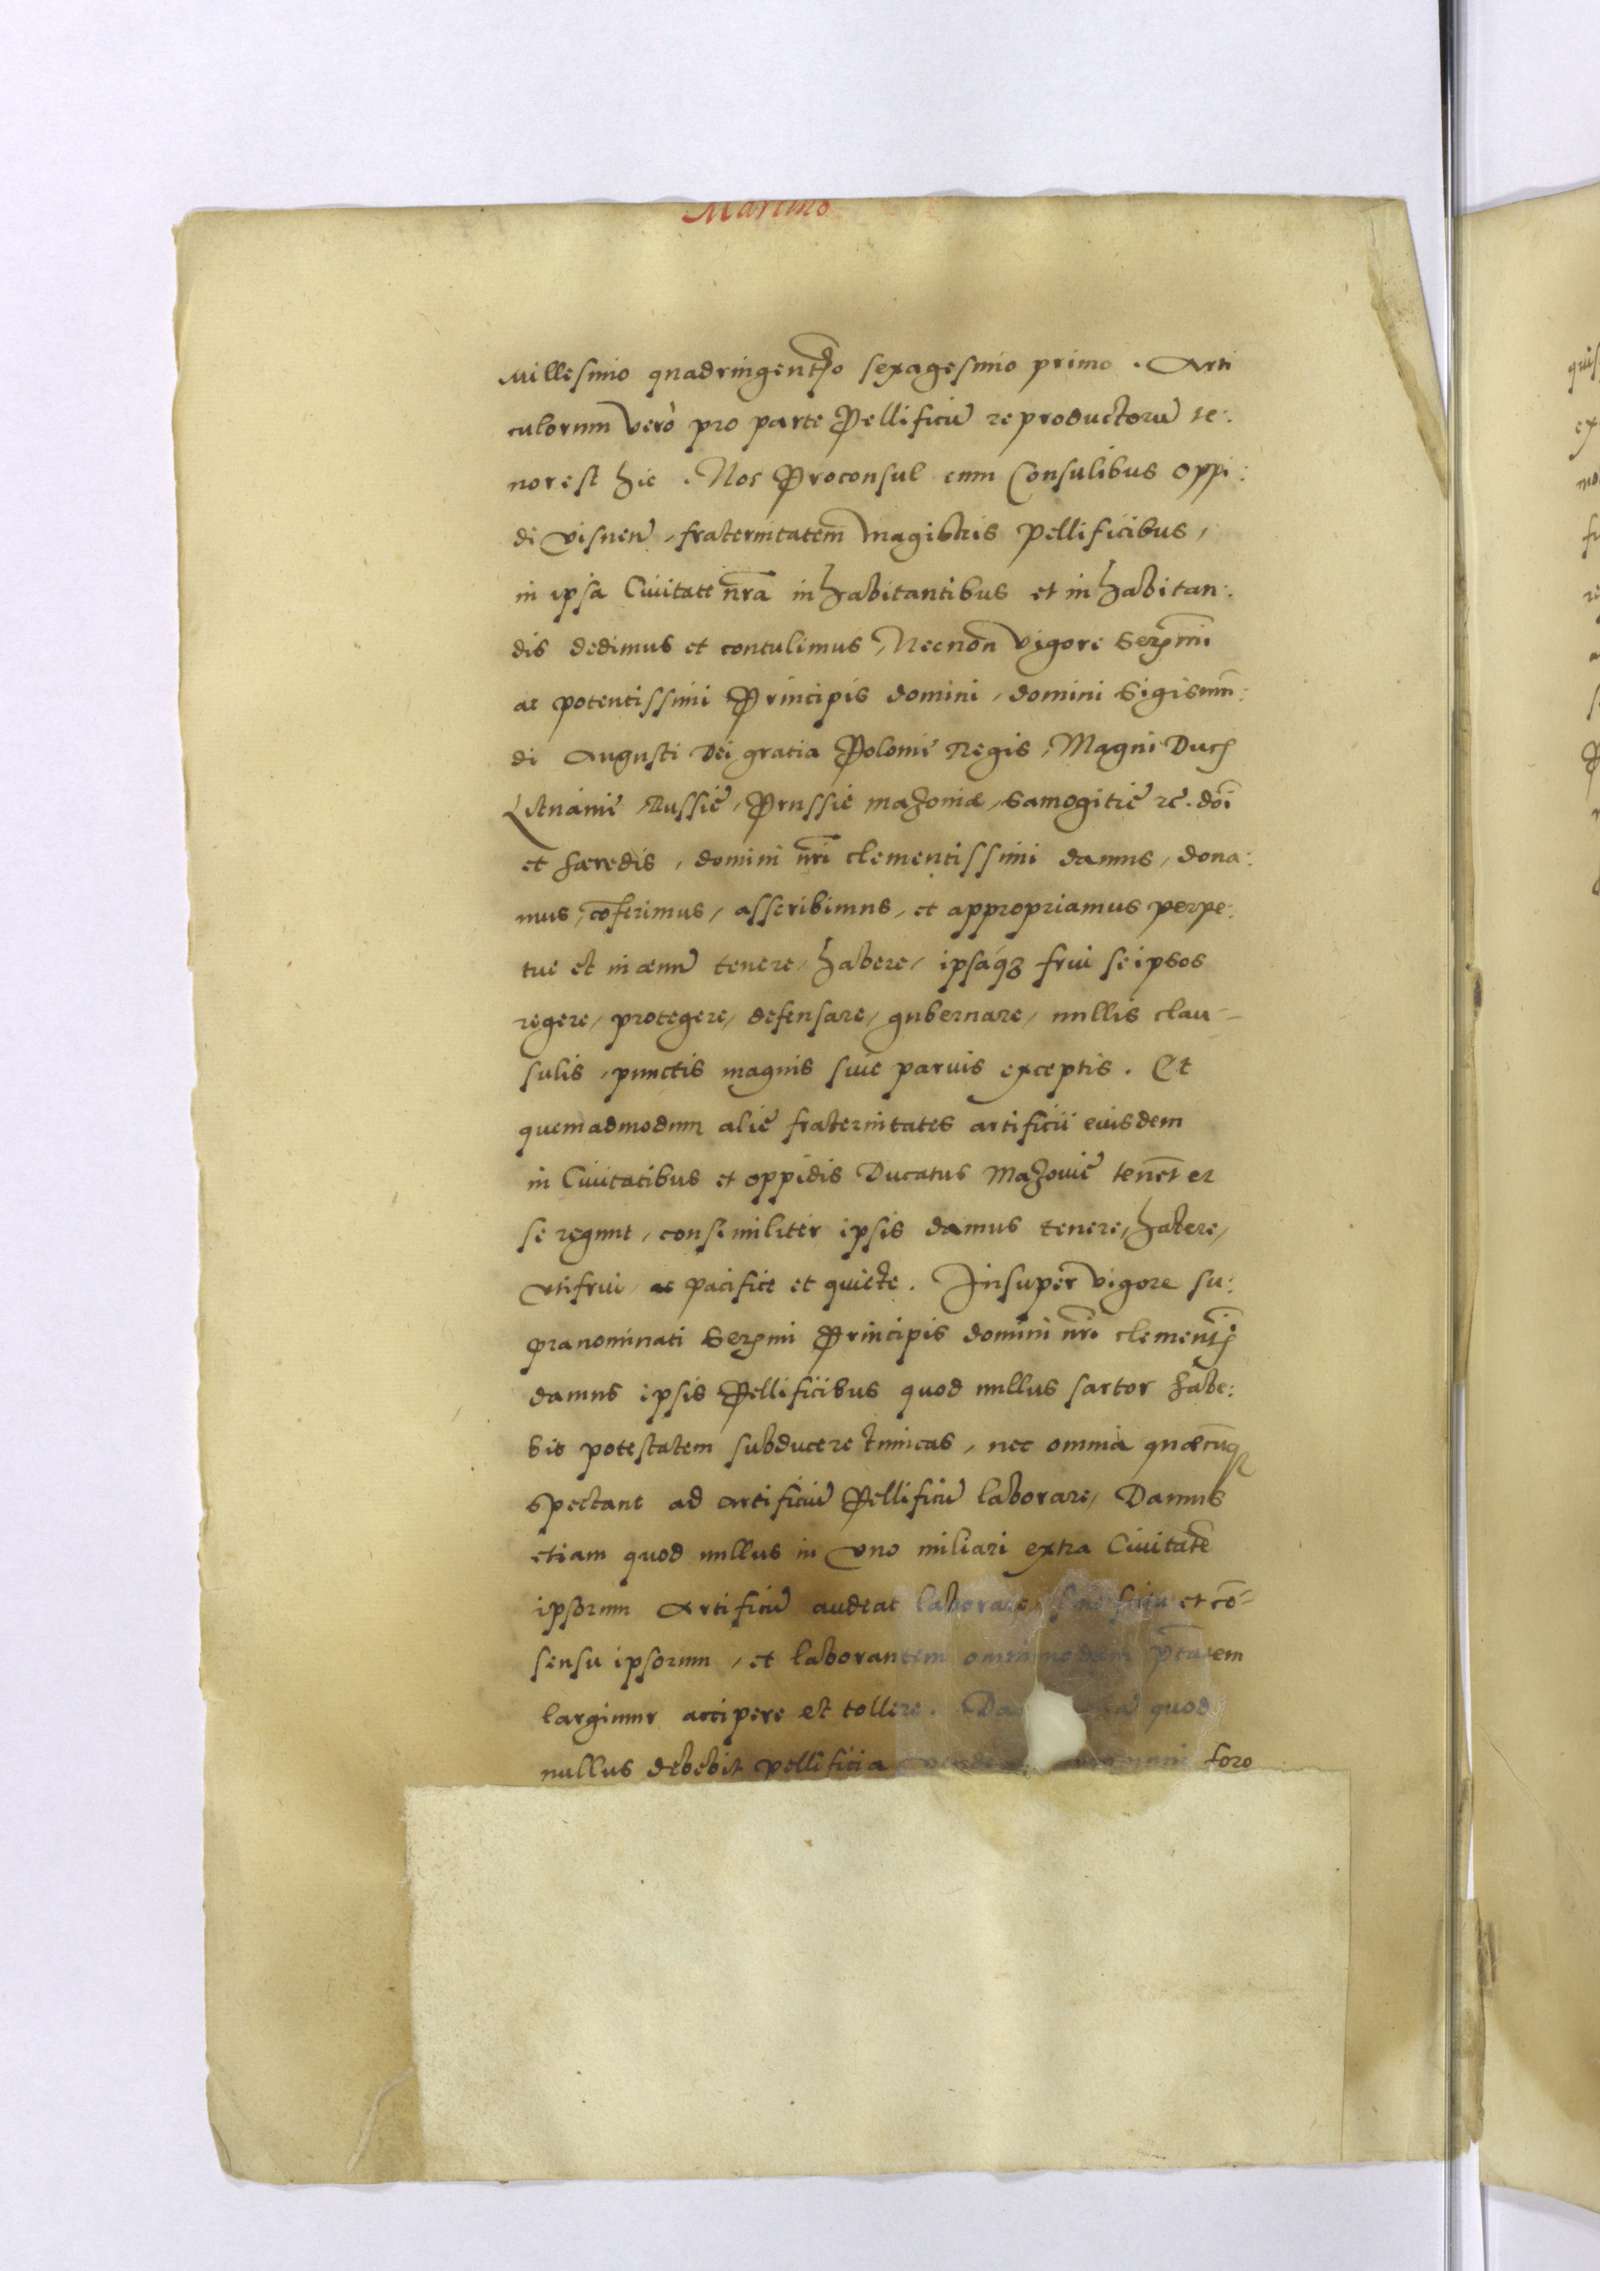 Martino
Millesimo quadringentmo sexagesimo primo. Arti
culorum verò pro parte Pellificũ reproductorũ te:
nor est hic. Nos Proconsul cum Consulibus Oppi:
di Visneñ, fraternitatem magistris pellificibus,
in ipsa Ciuitate nrã inhabitantibus et inhabitan:
dis dedimus et contulimus, Necnon vigore Serẽmi
ac potentissimi Principis domini, domini Sigismũ:
di Augusti Dei gratia Polonię Regis, Magni Ducis
Lituanię, Russię, Prussię Mazoniæ, Samogitię zc. dñi
et hæredis, domini nrĩ clementissimi damus, dona:
mus, cõferimus, asscribimus, et appropriamus perpe:
tue et in æuũ tenere, habere, ipsáqz frui se ipsos
regere, protegere, defensare, gubernare, nullis clau-
sulis, punctis magnis siue paruis exceptis. Et
quemadmodum alię fraternitates artificii eiusdem
in Ciuitatibus et oppidis Ducatus Mazouię tenẽt et
se regunt, consimiliter ipsis damus tenere, habere,
vti frui, ac pacifice et quiete. Insuper vigore su:
pranominati Sermi Principis domini nri clementis
damus ipsis Pellificibus quod nullus sartor habe:
bit potestatem subducere tunicas, nec omnia quæcũqz
spectant ad artificiũ Pellificũ laborare, Damus
etiam quod nullus in vno miliari extra Ciuitatẽ
ipsorum Artificiũ audeat laborare, et cõ-
sensu ipsorum, et laborantem omnimodam ptãtem
largimur accipere et tollere. quod
nullus debebit pellificia foro